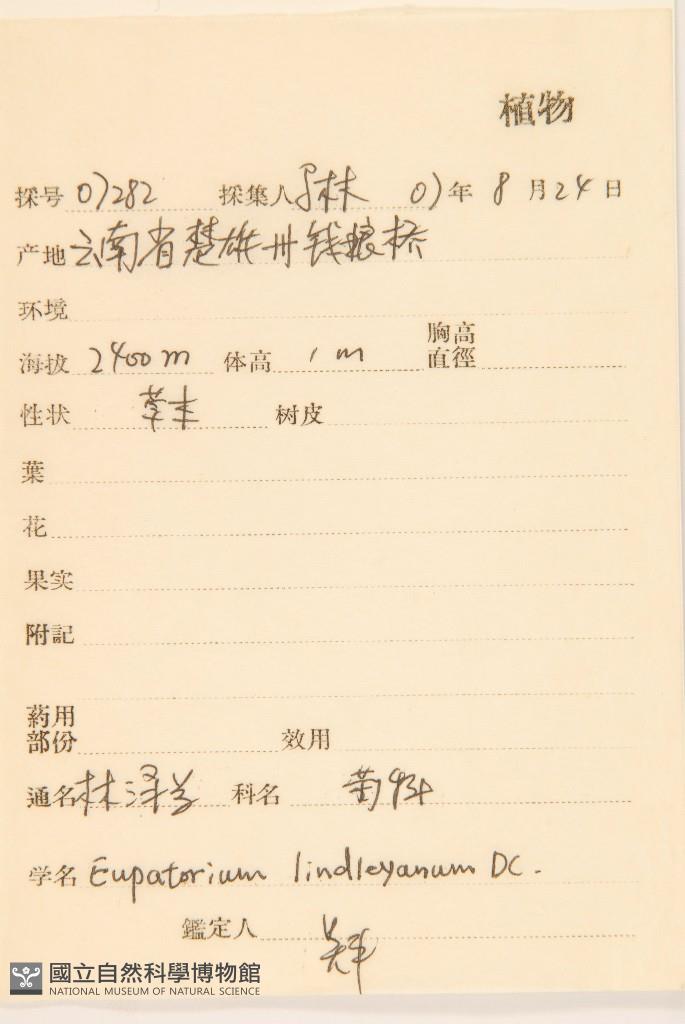 植物
採号 07282 採集人 林 07年 8月24日
产地 云南省楚雄州钱粮桥
环境
海拔 2400m 体高 1m 胸高直徑
性状 草本 树皮
葉
花
果实
附記
葯用部份 效用
通名 林泽兰 科名 菊科
学名 Eupatorium lindleyanum DC.
鑑定人
國立自然科學博物館
NATIONAL MUSEUM OF NATURAL SCIENCE